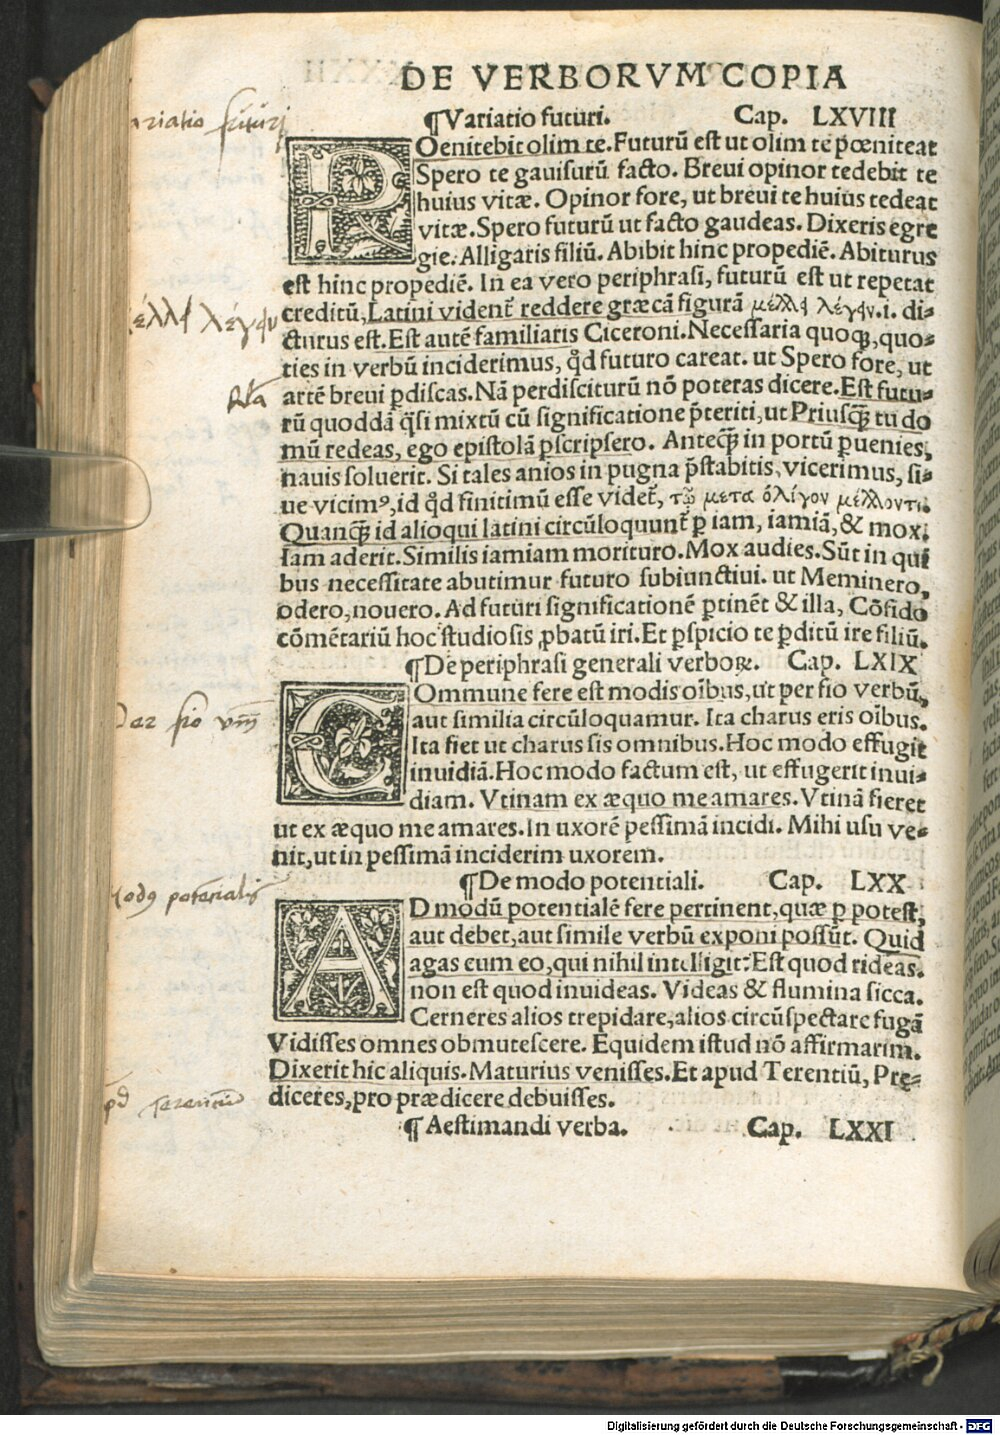 DE VERBORVM COPIA
¶Variatio futuri. Cap. LXVIII
ariatio futuri
ROenitebit olim te. Futurū est ut olim te pœniteat
Spero te gauisurū facto. Breui opinor tedebit te
huius vitæ. Opinor fore, ut breui te huius tedeat
vitæ. Spero futurū ut facto gaudeas. Dixeris egre
gie. Alligaris filiū. Abibit hinc propediē. Abiturus
est hinc propediē. In ea vero periphrasi, futurū est ut repetat
creditū, Latini vident᷑ reddere græcā figurā μέλλω λέγειν .i. di⸗
έλλω λέγειν
cturus est. Est autē familiaris Ciceroni. Necessaria quoqꝫ, quo⸗
ties in verbū inciderimus, qd̓ futuro careat. ut Spero fore, ut
artē breui ꝑdiscas. Nā perdisciturū nō poteras dicere. Est futu⸗
rū quoddā q̃si mixtū cū significatione p̃teriti, ut Priusq̃ꝫ tu do
mū redeas, ego epistolā ꝑscripsero. Anteq̃ꝫ in portū ꝑuenies,
nauis soluerit. Si tales anios in pugna p̃stabitis, vicerimus, si⸗
ue vicimꝰ, id qd̓ finitimū esse videt᷑, τῷ μετα ὀλίγον μέλλοντι.
Quanq̃ꝫ id alioqui latini circūloquunt᷑ ꝑ iam, iamiā, & mox.
Iam aderit. Similis iamiam morituro. Mox audies. Sūt in qui
bus necessitate abutimur futuro subiunctiui. ut Meminero,
odero, nouero. Ad futuri significationē ꝑtinēt & illa, Cōfido
cōmētariū hoc studiosis ꝓbatū iri. Et ꝑspicio te ꝑditū ire filiū.
¶De periphrasi generali verboꝝ. Cap. LXIX
COmmune fere est modis oībus, ut per fio verbū,
aut similia circūloquamur. Ita charus eris oībus.
per fio vm̄
Ita fiet ut charus sis omnibus. Hoc modo effugit
inuidiā. Hoc modo factum est, ut effugerit inui⸗
diam. Vtinam ex æquo me amares. Vtinā fieret
ut ex æquo me amares. In uxorē pessimā incidi. Mihi usu ve⸗
nit, ut in pessimā inciderim uxorem.
¶De modo potentiali. Cap. LXX
odꝰ potentialis
AD modū potentialē fere pertinent, quæ ꝑ potest,
aut debet, aut simile verbū exponi possūt. Quid
agas cum eo, qui nihil intelligit: Est quod rideas.
non est quod inuideas. Videas & flumina sicca.
Cerneres alios trepidare, alios circūspectare fugā
Vidisses omnes obmutescere. Equidem istud nō affirmarim.
Dixerit hic aliquis. Maturius venisses. Et apud Terentiū, Prę⸗
diceres, pro prædicere debuisses.
pd Terentiū
¶Aestimandi verba. Cap. LXXI
Digitalisierung gefördert durch die Deutsche Forschungsgemeinschaft - DFG